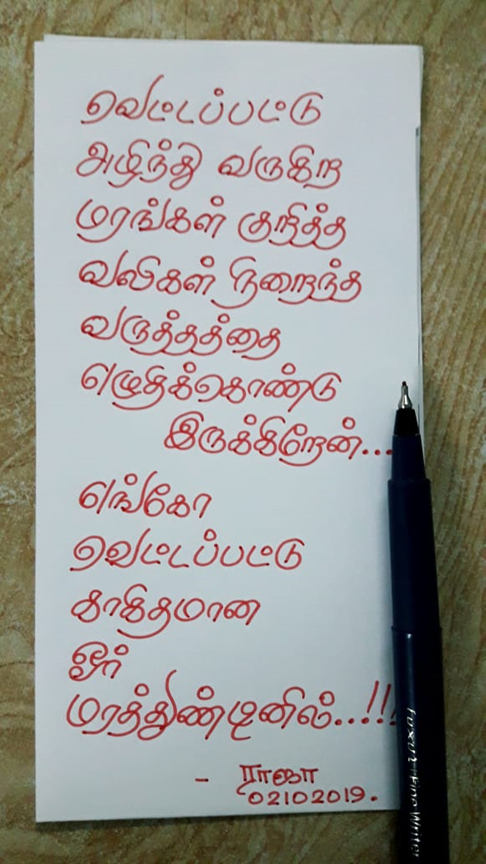 வெட்டப்பட்டு
அழிந்து வருகிற
மரங்கள் குறித்த
வலிகள் நிறைந்த
வருத்தத்தை
எழுதிக்கொண்டு
இருக்கிறேன்...
எங்கோ
வெட்டப்பட்டு
காகிதமான
ஓர்
மரத்துண்டினில்..!!!
- ராஜா
02102019.
Luxor Fine Writer